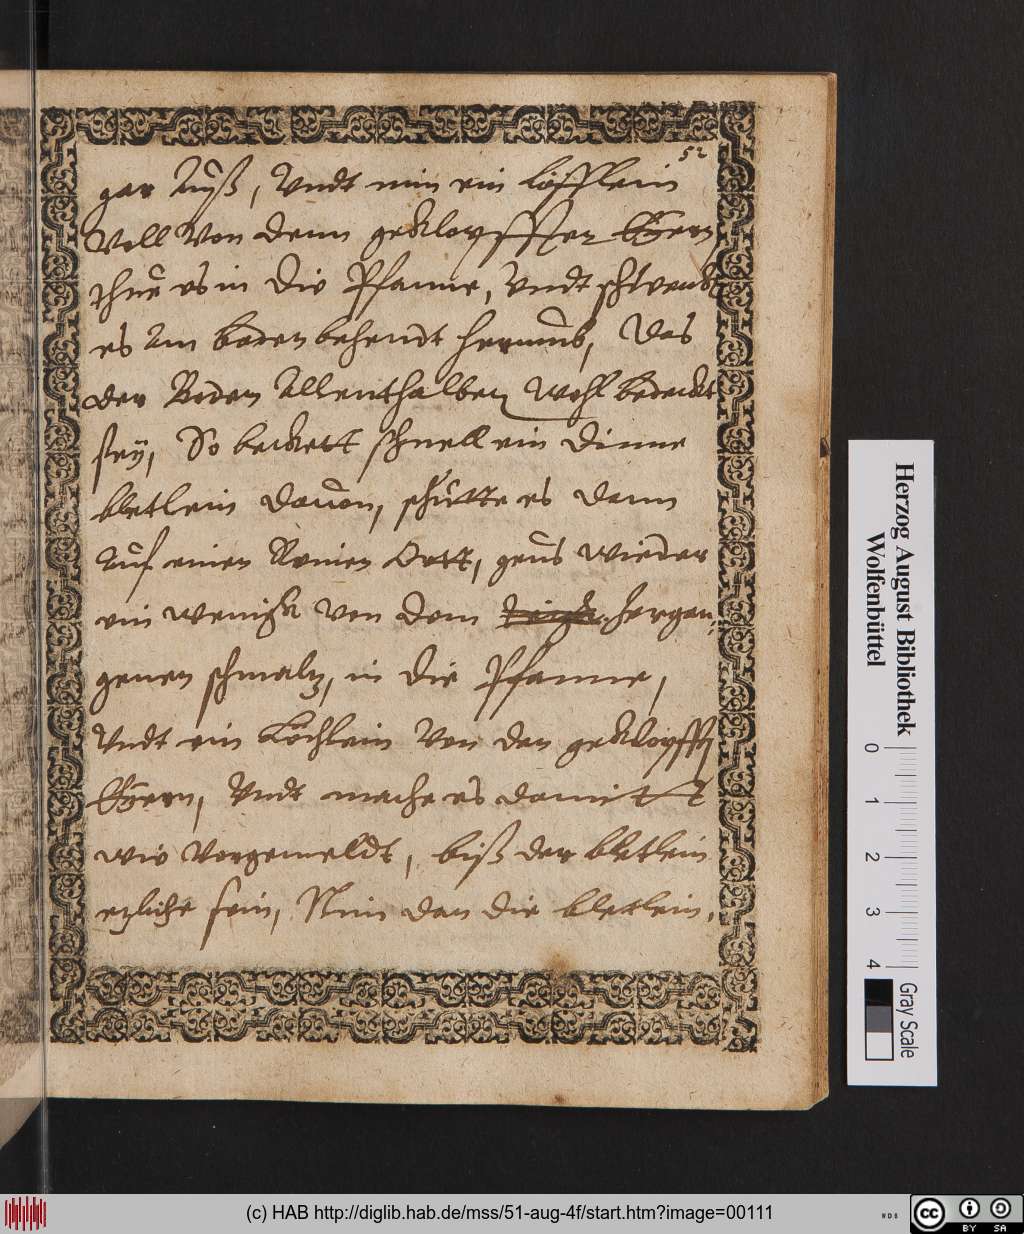 52
gar Auß, Vndt nim ein löfflein
Voll Von denn geklopfften Eyern
thue es in die Pfanne, Vndt schwenk
es Am boden behendt herumb, Das
der Boden Allenthalben Wohl bedeckt
sey, So beckett schnell ein dinne
bletlein dauon, schütte es dann
Auf einen Reinen Ortt, geus wieder
ein wenigk von dem hergan,
genen schmaltz, in die Pfanne,
Vndt ein Löchlein Von den geklopfften
Eyern, Vndt mache es damitt
wie Vorgemeldt, biß der bletlein
etzliche sein, Nim dan die bletlein,
Herzog August Bibliothek
Wolfenbüttel
0 1 2 3 4
Gray Scale
(c) HAB http://diglib.hab.de/mss/51-aug-4f/start.htm?image=00111
WDB
cc BY SA